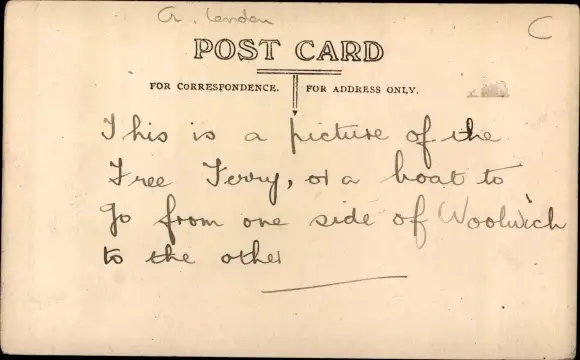 POST CARD
FOR CORRESPONDENCE.
FOR ADDRESS ONLY.
This is a picture of the
Free Ferry, or a boat to
go from one side of Woolwich
to the other
C